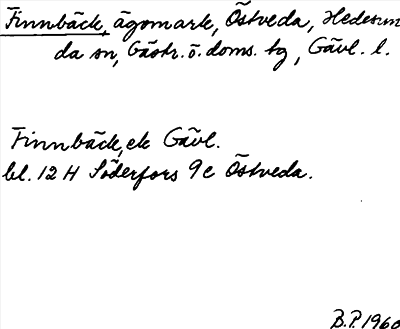 Finnbäck, ägomark, Östveda, Hedesun
da sn, Gästr. ö. doms. tg, Gävl. l.
Finnbäck, ek Gävl.
bl. 12 H Söderfors 9 c Östveda.
B.P. 1960